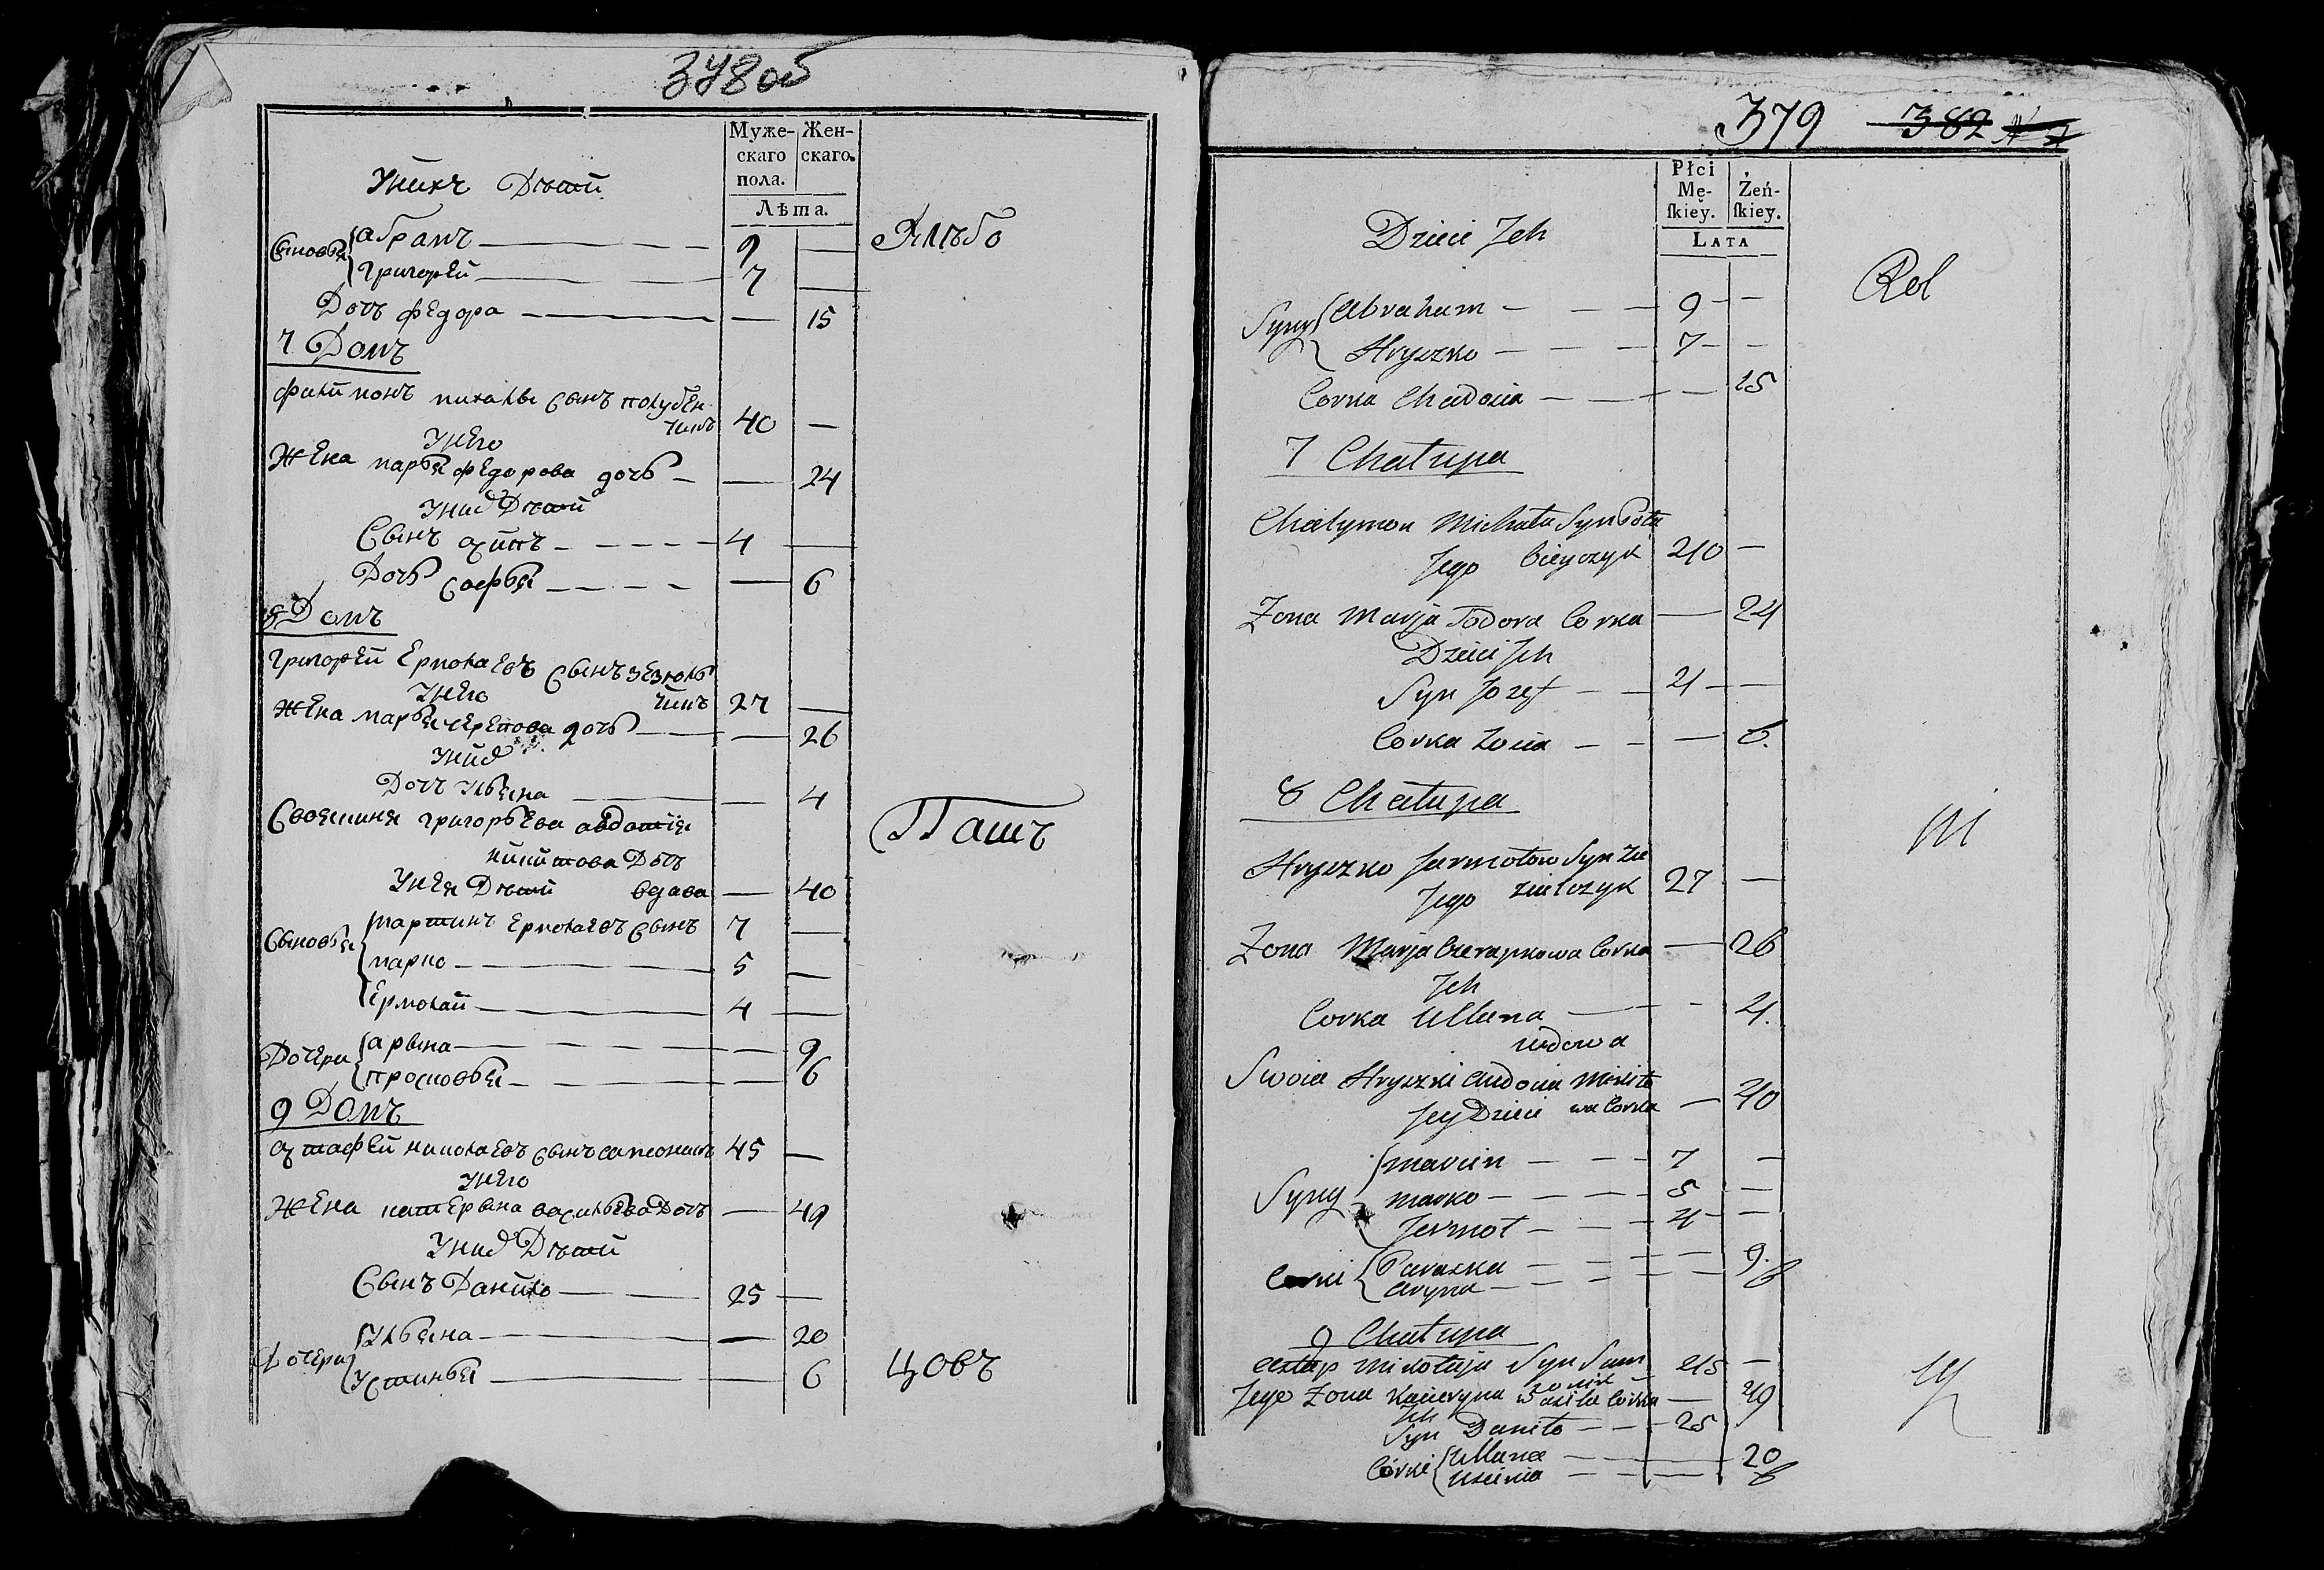 378 об
Муже- Жен-
скаго скаго.
пола.
Лѣта.
Унихъ Дѣти
Хлѣбо
Сыновья { абрамъ — 9 —
григорей — 7 —
Дочъ федора — — 15
7 Домъ
филимонъ михайлы сынъ полубен
чикъ 40 —
Унего
Жена марья федорова дочь — — 24
Унихъ Дѣти
Сынъ осипъ — 4 —
Дочь софья — — 6
8 Домъ
григорей Ермолаевъ сынъ зезюль
чикъ 27 —
Унего
жена марья черепова дочь — — 26
Унихъ
Дочъ Ульяна — — 4
Пашъ
Своячиня григорьева авдотия
никитова Дочъ
Унея Дѣти вдава — 40
Сыновья { мартинъ Ермолаевъ сынъ 7 —
марко — 5 —
Ермолай — 4 —
Дочери { арына — — 9
просковья — — 6
9 Домъ
остафей николаевъ сынъ сапсоникъ 45 —
Унего
Жена катерына васильева Дочъ — 49
Унихъ Дѣти
Сынъ Данило — 25 —
Дочери { Ульяна — — 20
Устинья — — 6
цовъ
379 382
Płci
Mę- Żeń-
ſkiey. ſkiey.
LATA
Dzieci Jch
Rol
Syny { Abraham — 9 —
Hryszko — 7 —
Corka Chwdosia — — 15
7 Chałupa
Chalymon Michała Syn Połu
bieyczyk 40 —
Jego
Zona Marja Todora Corka — 24
Dzieci Jch
Syn Jozef — 4 —
Corka Zosia — — 6.
8 Chałupa
ni
Hryszko Jarmołow Syn Ze
ziulczyk 27 —
Jego
Zona Marja Czerapkowa Corka — 26
Jch
Corka Ullana — — 4.
wdowa
Swoia Hryszki Audocia Mikito
wa Corka — 40
Jey Dzieci
Syny { Marcin — 7 —
Marko — 5 —
Jermoł — 4 —
Corki { Paraska — — 9.
Aryna — — 6
9 Chałupa
Astap Mikołaja Syn Sam
sonik 45 —
Jego Zona Kacieryna Wasila Corka — 49
Jch
Syn Daniło — 25
Córki { Ullana — — 20
Uscinia — — 6
cy